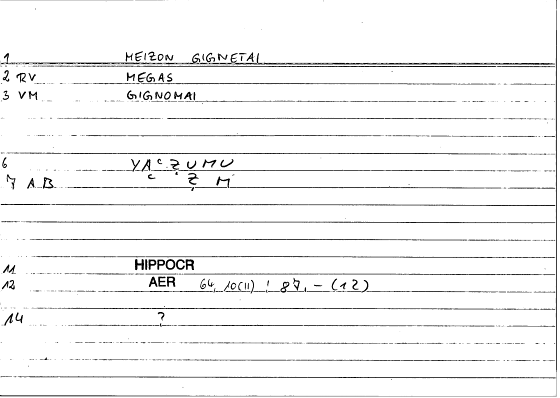 1 MEIZON GIGNETAI
2 RV MEGAS
3 VM GIGNOMAI
6
7 A B Ẓ M
11 HIPPOCR
12 AER 64, 10(11) ; 87, - (12)
14 ?